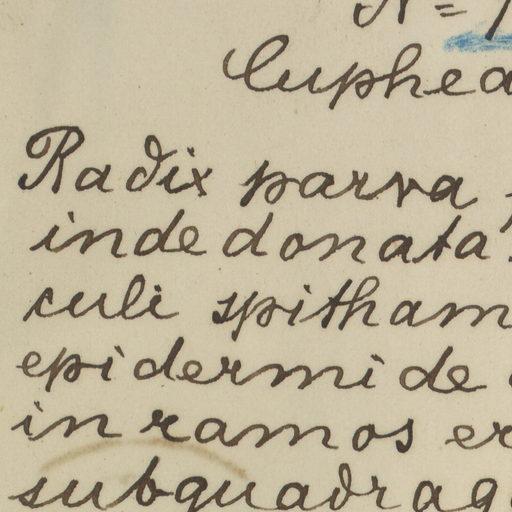 N=
Cuphea
Radix parva
inde donata
culi spitham
epidermide
in ramos er
subquadrag